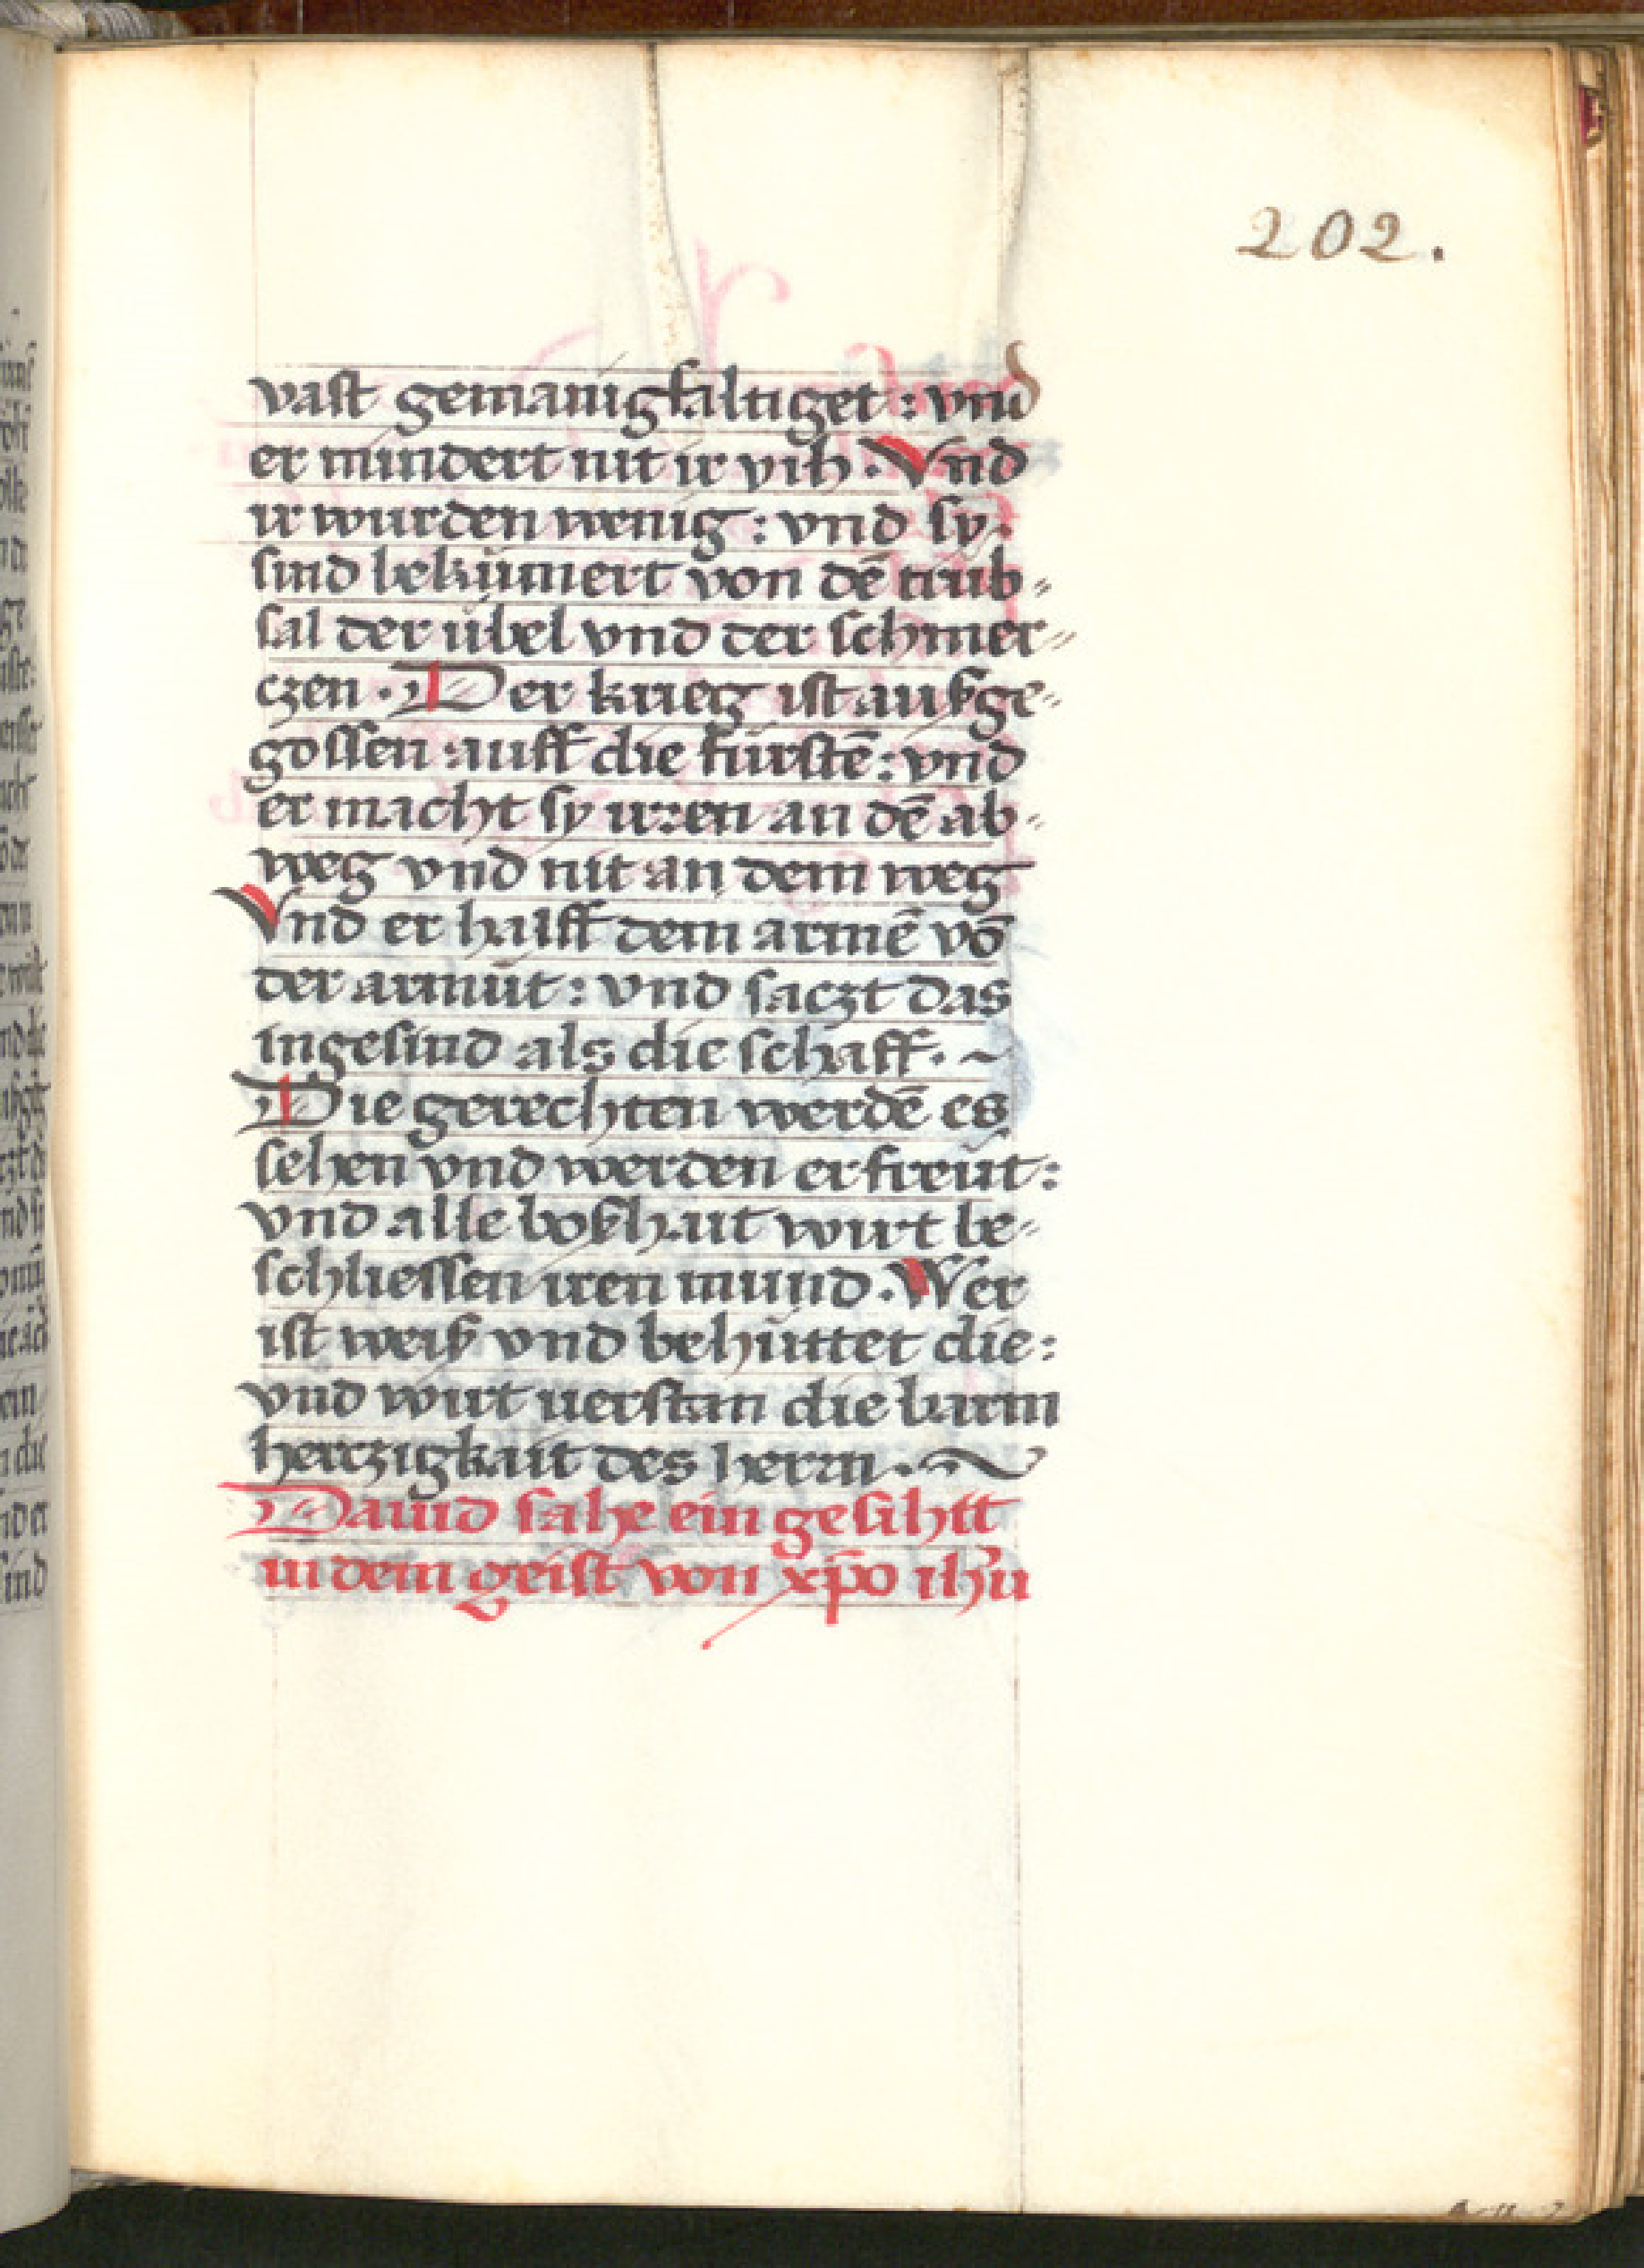 202.
vast gemanigfaltiget : vnd
er mindert nit ir vih . Vnd
ir wurden wenig : vnd sy
sind bekümert von dē trüb〃
sal der übel vnd der schmer〃
czen . Der krieg ist außge〃
gossen auff die fürstē : vnd
er macht sy irren an dē ab〃
weg vnd nit an dem weg
Vnd er halff dem armē vō
der armůt : vnd saczt das
ingesind als die schaff . ~
Die gerechten werdē es
sehen vnd werden erfreüt :
vnd alle boßhait wirt be〃
schliessen iren mund . Wer
ist weiß vnd behüttet die :
vnd wirt uerstan die barm
herczigkait des herrn . ~
Dauid sahe ein gesihtt
in dem geist von xp̄o ih̄u